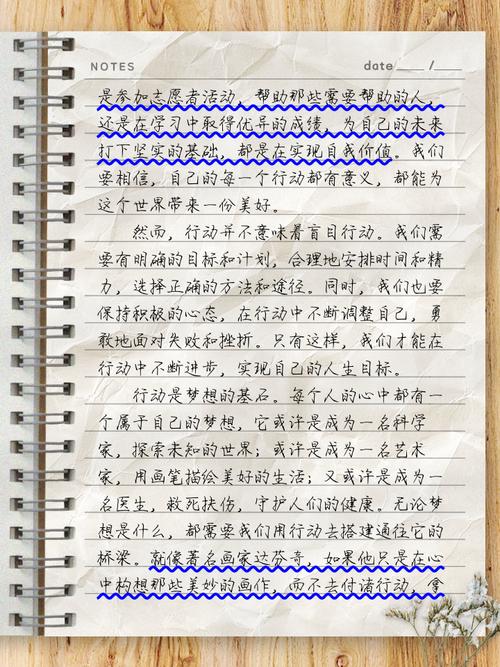 NOTES
date ____ / ____
是参加志愿者活动，帮助那些需要帮助的人，
还是在学习中取得优异的成绩，为自己的未来
打下坚实的基础，都是在实现自我价值。我们
要相信，自己的每一个行动都有意义，都能为
这个世界带来一份美好。
然而，行动并不意味着盲目行动。我们需
要有明确的目标和计划，合理地安排时间和精
力，选择正确的方法和途径。同时，我们也要
保持积极的心态，在行动中不断调整自己，勇
敢地面对失败和挫折。只有这样，我们才能在
行动中不断进步，实现自己的人生目标。
行动是梦想的基石。每个人的心中都有一
个属于自己的梦想，它或许是成为一名科学
家，探索未知的世界；或许是成为一名艺术
家，用画笔描绘美好的生活；又或许是成为一
名医生，救死扶伤，守护人们的健康。无论梦
想是什么，都需要我们用行动去搭建通往它的
桥梁。就像著名画家达芬奇，如果他只是在心
中构想那些美妙的画作，而不去付诸行动，拿